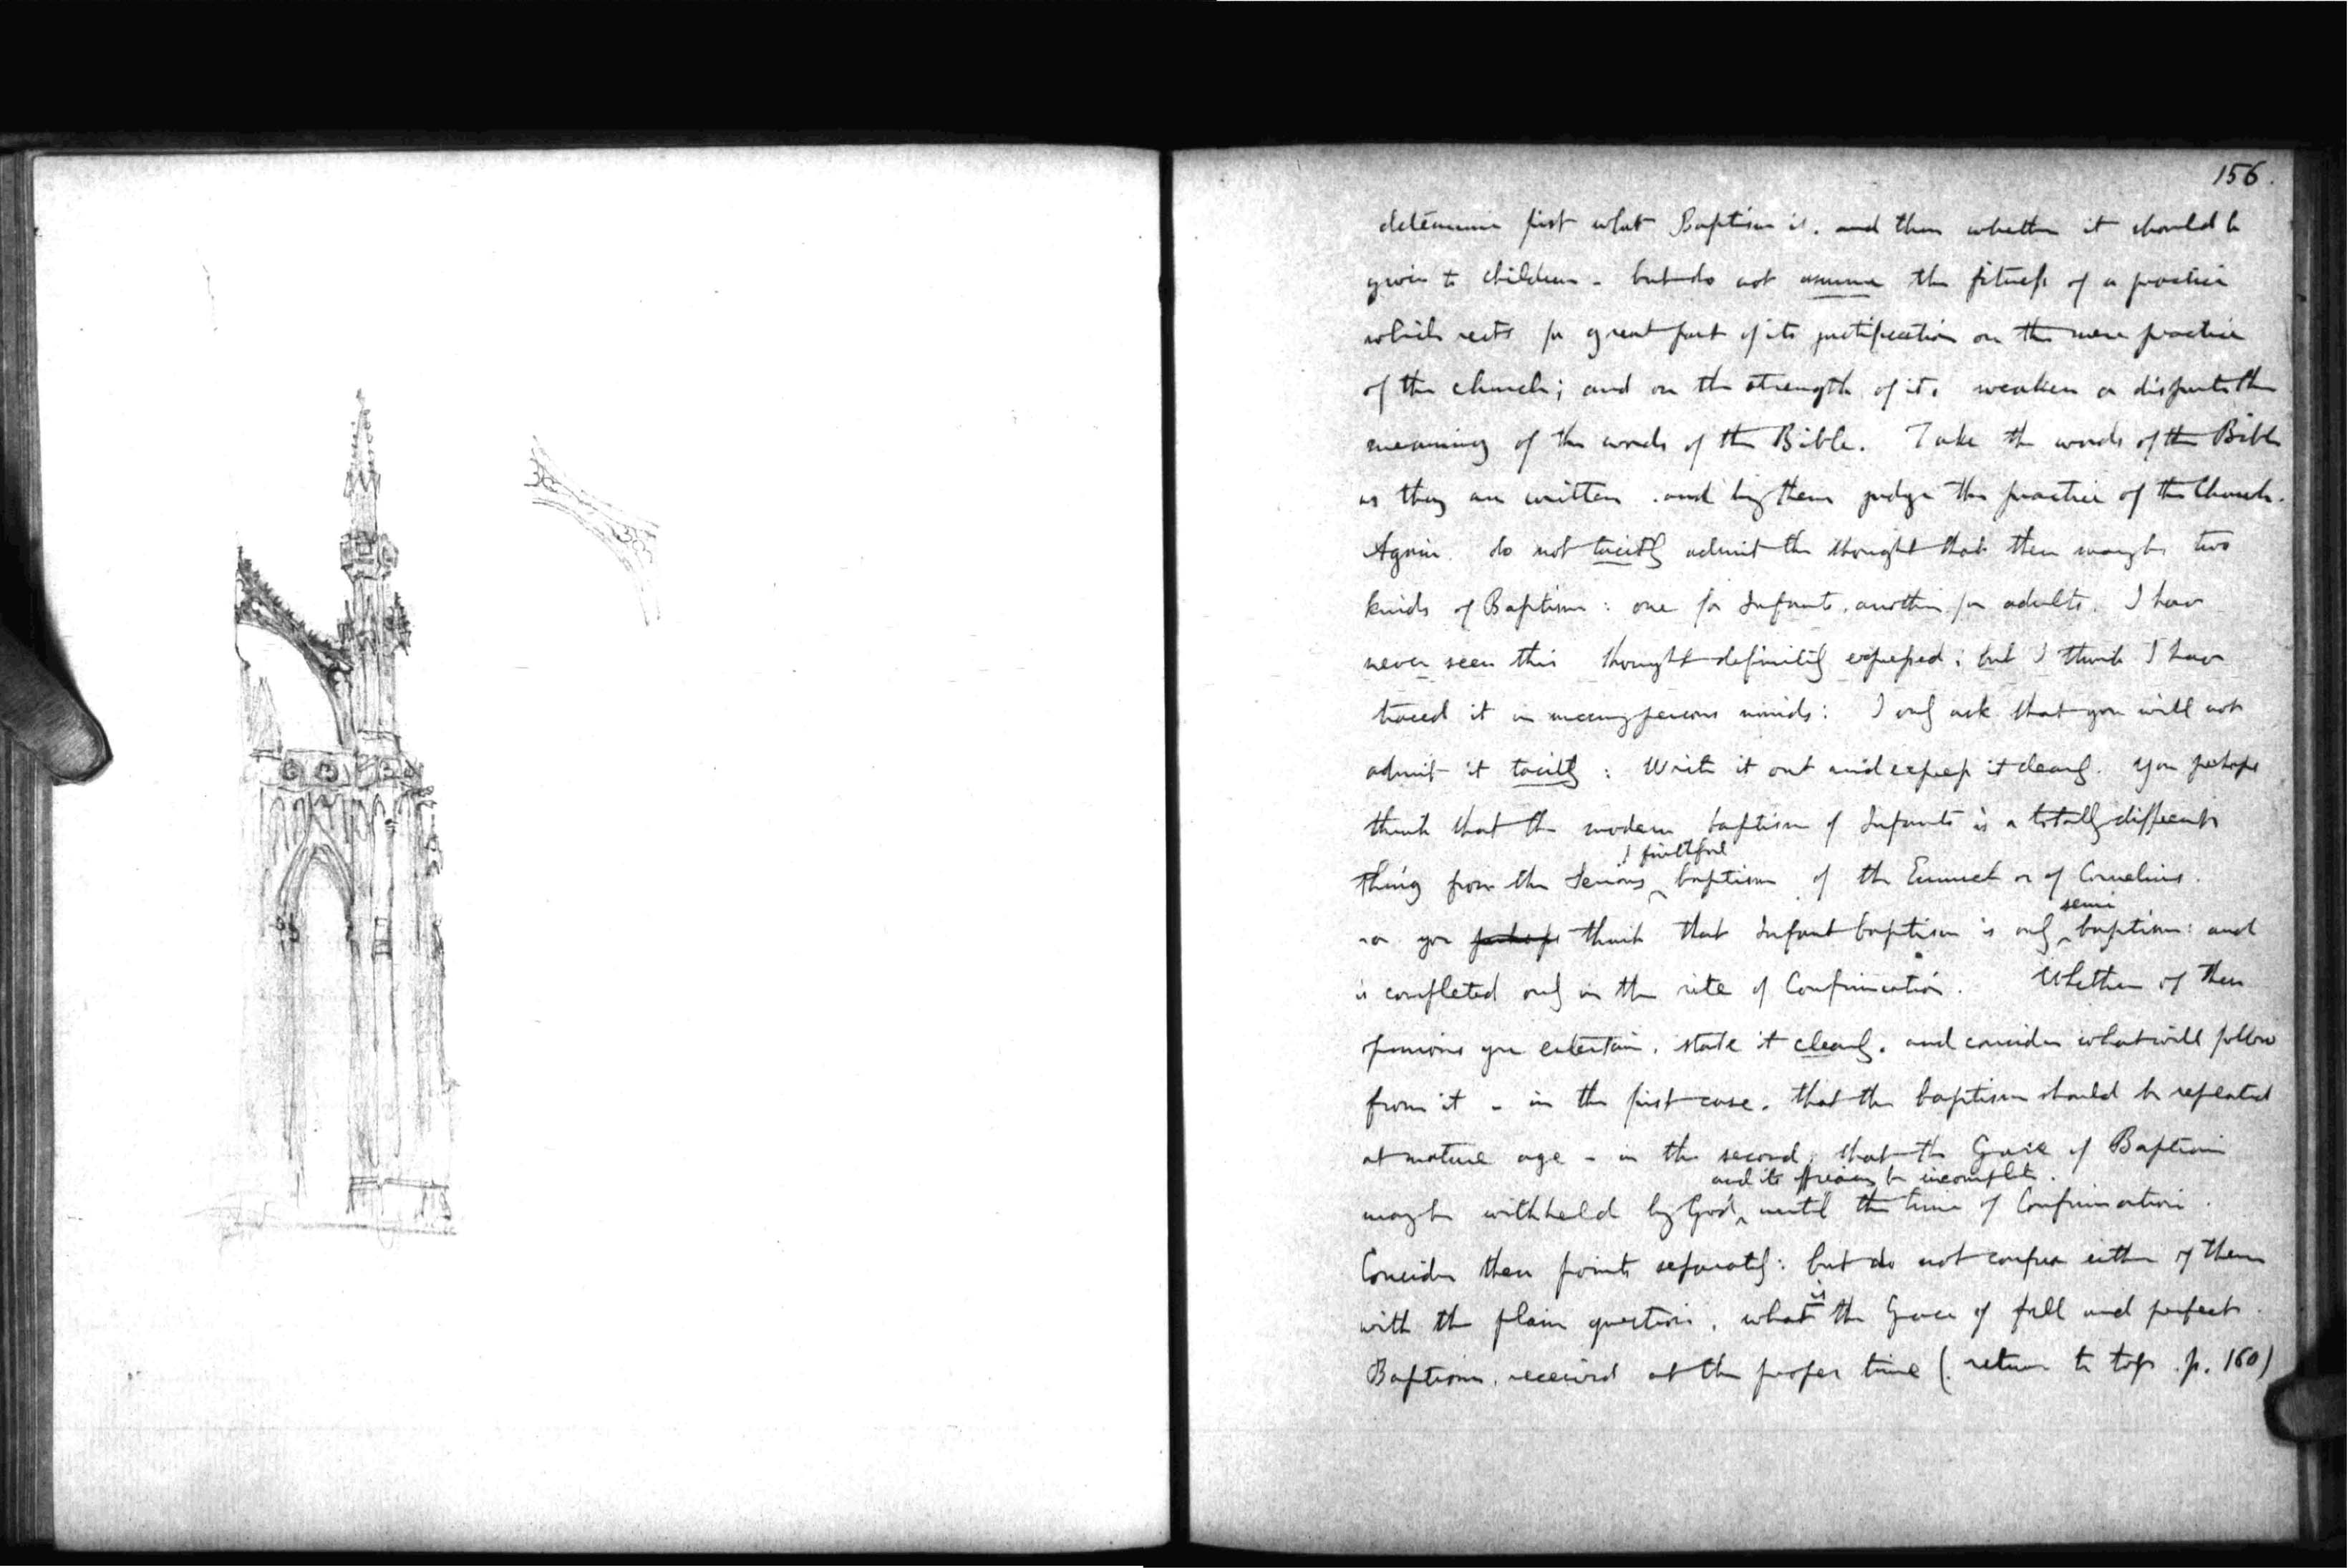 156.
determine first what Baptism is. and then whether it should be
given to children - but do not assume the fitness of a practice
which rests for great part of its justification on the mere practice
of the church; and on the strength of it, weaken or dispute the
meaning of the words of the Bible. Take the words of the Bible
as they are written. and by them judge the practice of the Church.
Again. do not tacitly admit the thought that there may be two
kinds of Baptism: one for Infants, another for adults. I have
never seen this thought definitely expressed; but I think I have
traced it in many persons minds: I only ask that you will not
admit it tacitly: Write it out and express it clearly. You perhaps
think that the modern baptism of Infants is a totally different
& faithful
thing from the serious baptism of the Eunuch or of Cornelius.
semi
or you perhaps think that Infant baptism is only baptism: and
is completed only in the rite of Confirmation. Whether of these
opinions you entertain, state it clearly. and consider what will follow
from it - in the first case. that the baptism should be repeated
at mature age - in the second, that the Grace of Baptism
and its efficiency be incomplete.
may be withheld by God, until the time of Confirmation.
Consider these points separately: but do not confuse either of them
is
with the plain question, what the Grace of full and perfect
Baptism, received at the proper time (return to top. p. 160)